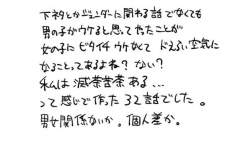 下ネタとかジェンダーに関わる話でなくても
男の子がウケると思ってやったことが
女の子にビタイチウケなくてドえらい空気に
なることってあるよね？ない？
私は滅茶苦茶ある…
って感じで作った32話でした。
男女関係ないか。個人差か。